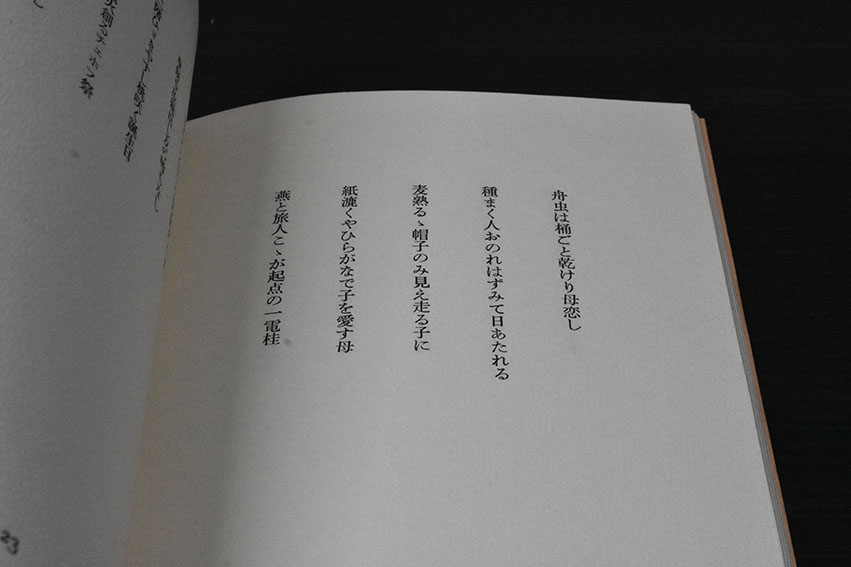 舟虫は桶ごと乾けり母恋し
種まく人おのれはずみて日あたれる
麦熟るゝ帽子のみ見え走る子に
紙漉くやひらがなで子を愛す母
燕と旅人こゝが起点の一電柱
23